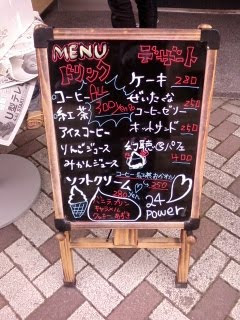 MENU
ドリンク
ALL
300yen
コーヒー
紅茶
アイスコーヒー
りんごジュース
みかんジュース
ソフトクリ
280
デザート
ケーキ 280
ぜいたくな
コーヒーゼリー 250
ホットサンド 250
幻聴パフェ
400
コーヒー紅茶おかわり
250
24
Power